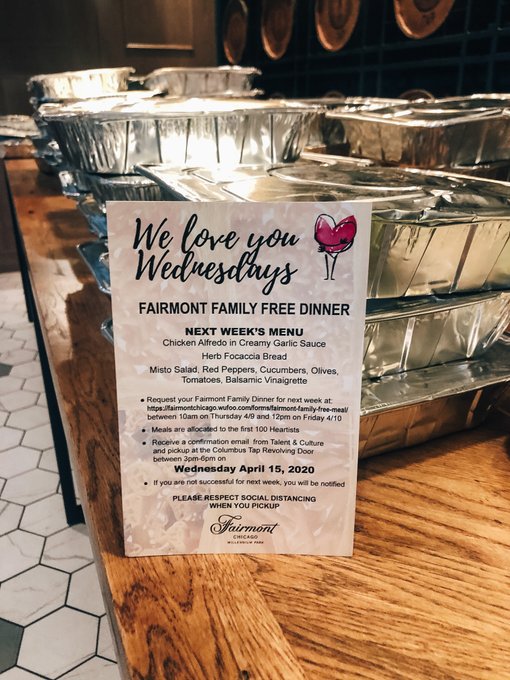 We love you
Wednesdays
FAIRMONT FAMILY FREE DINNER
NEXT WEEK'S MENU
Chicken Alfredo in Creamy Garlic Sauce
Herb Focaccia Bread
Misto Salad, Red Peppers, Cucumbers, Olives,
Tomatoes, Balsamic Vinaigrette
• Request your Fairmont Family Dinner for next week at:
https://fairmontchicago.wufoo.com/forms/fairmont-family-free-meal/
between 10am on Thursday 4/9 and 12pm on Friday 4/10
• Meals are allocated to the first 100 Heartists
• Receive a confirmation email from Talent & Culture
and pickup at the Columbus Tap Revolving Door
between 3pm-6pm on
Wednesday April 15, 2020
• If you are not successful for next week, you will be notified
PLEASE RESPECT SOCIAL DISTANCING
WHEN YOU PICKUP
Fairmont
CHICAGO
MILLENNIUM PARK